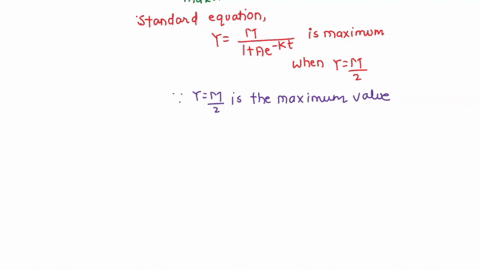 Standard equation,
Y = M / 1+Ae^-kt is maximum
when Y = M/2
∵ Y = M/2 is the maximum value